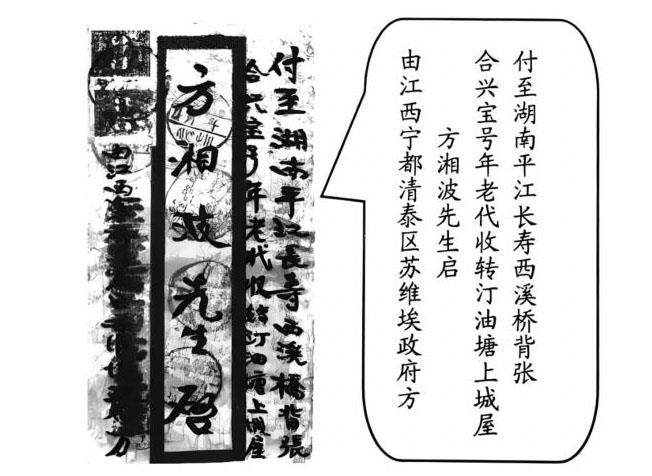 付至湖南平江長寿西溪橋背張
合兴宝号年老代收转汀油塘上城屋
方湘波先生启
由江西
付至湖南平江长寿西溪桥背张
合兴宝号年老代收转汀油塘上城屋
方湘波先生启
由江西宁都清泰区苏维埃政府方